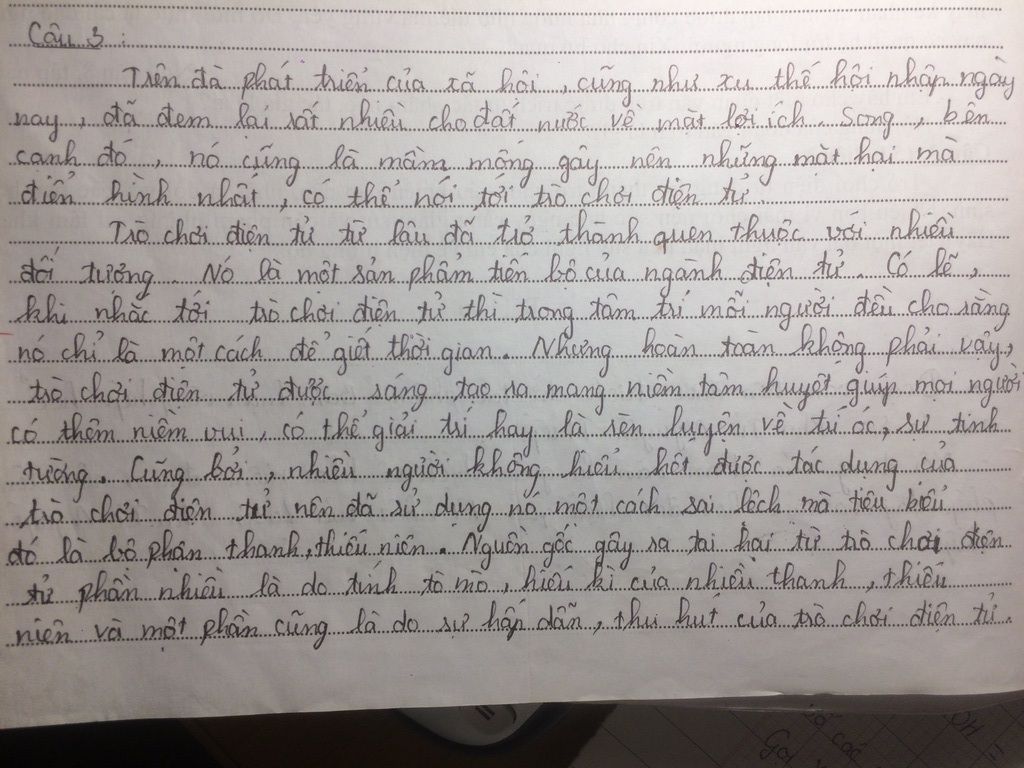 Câu 3 :
Trên đà phát triển của xã hội, cũng như xu thế hội nhập ngày
nay, đã đem lại rất nhiều cho đất nước về mặt lợi ích. Song, bên
cạnh đó, nó cũng là mầm mống gây nên những mặt hại mà
điển hình nhất, có thể nói tới trò chơi điện tử.
Trò chơi điện tử từ lâu đã trở thành quen thuộc với nhiều
đối tượng. Nó là một sản phẩm tiến bộ của ngành điện tử. Có lẽ,
khi nhắc tới trò chơi điện tử thì trong tâm trí mỗi người đều cho rằng
nó chỉ là một cách để giết thời gian. Nhưng hoàn toàn không phải vậy,
trò chơi điện tử được sáng tạo ra mang niềm tâm huyết giúp mọi người
có thêm niềm vui, có thể giải trí hay là rèn luyện về trí óc, sự tinh
tường. Cũng bởi, nhiều người không hiểu hết được tác dụng của
trò chơi điện tử nên đã sử dụng nó một cách sai lệch mà tiêu biểu
đó là bộ phận thanh, thiếu niên. Nguồn gốc gây ra tai hại từ trò chơi điện
tử phần nhiều là do tính tò mò, hiếu kì của nhiều thanh, thiếu
niên và một phần cũng là do sự hấp dẫn, thu hút của trò chơi điện tử.